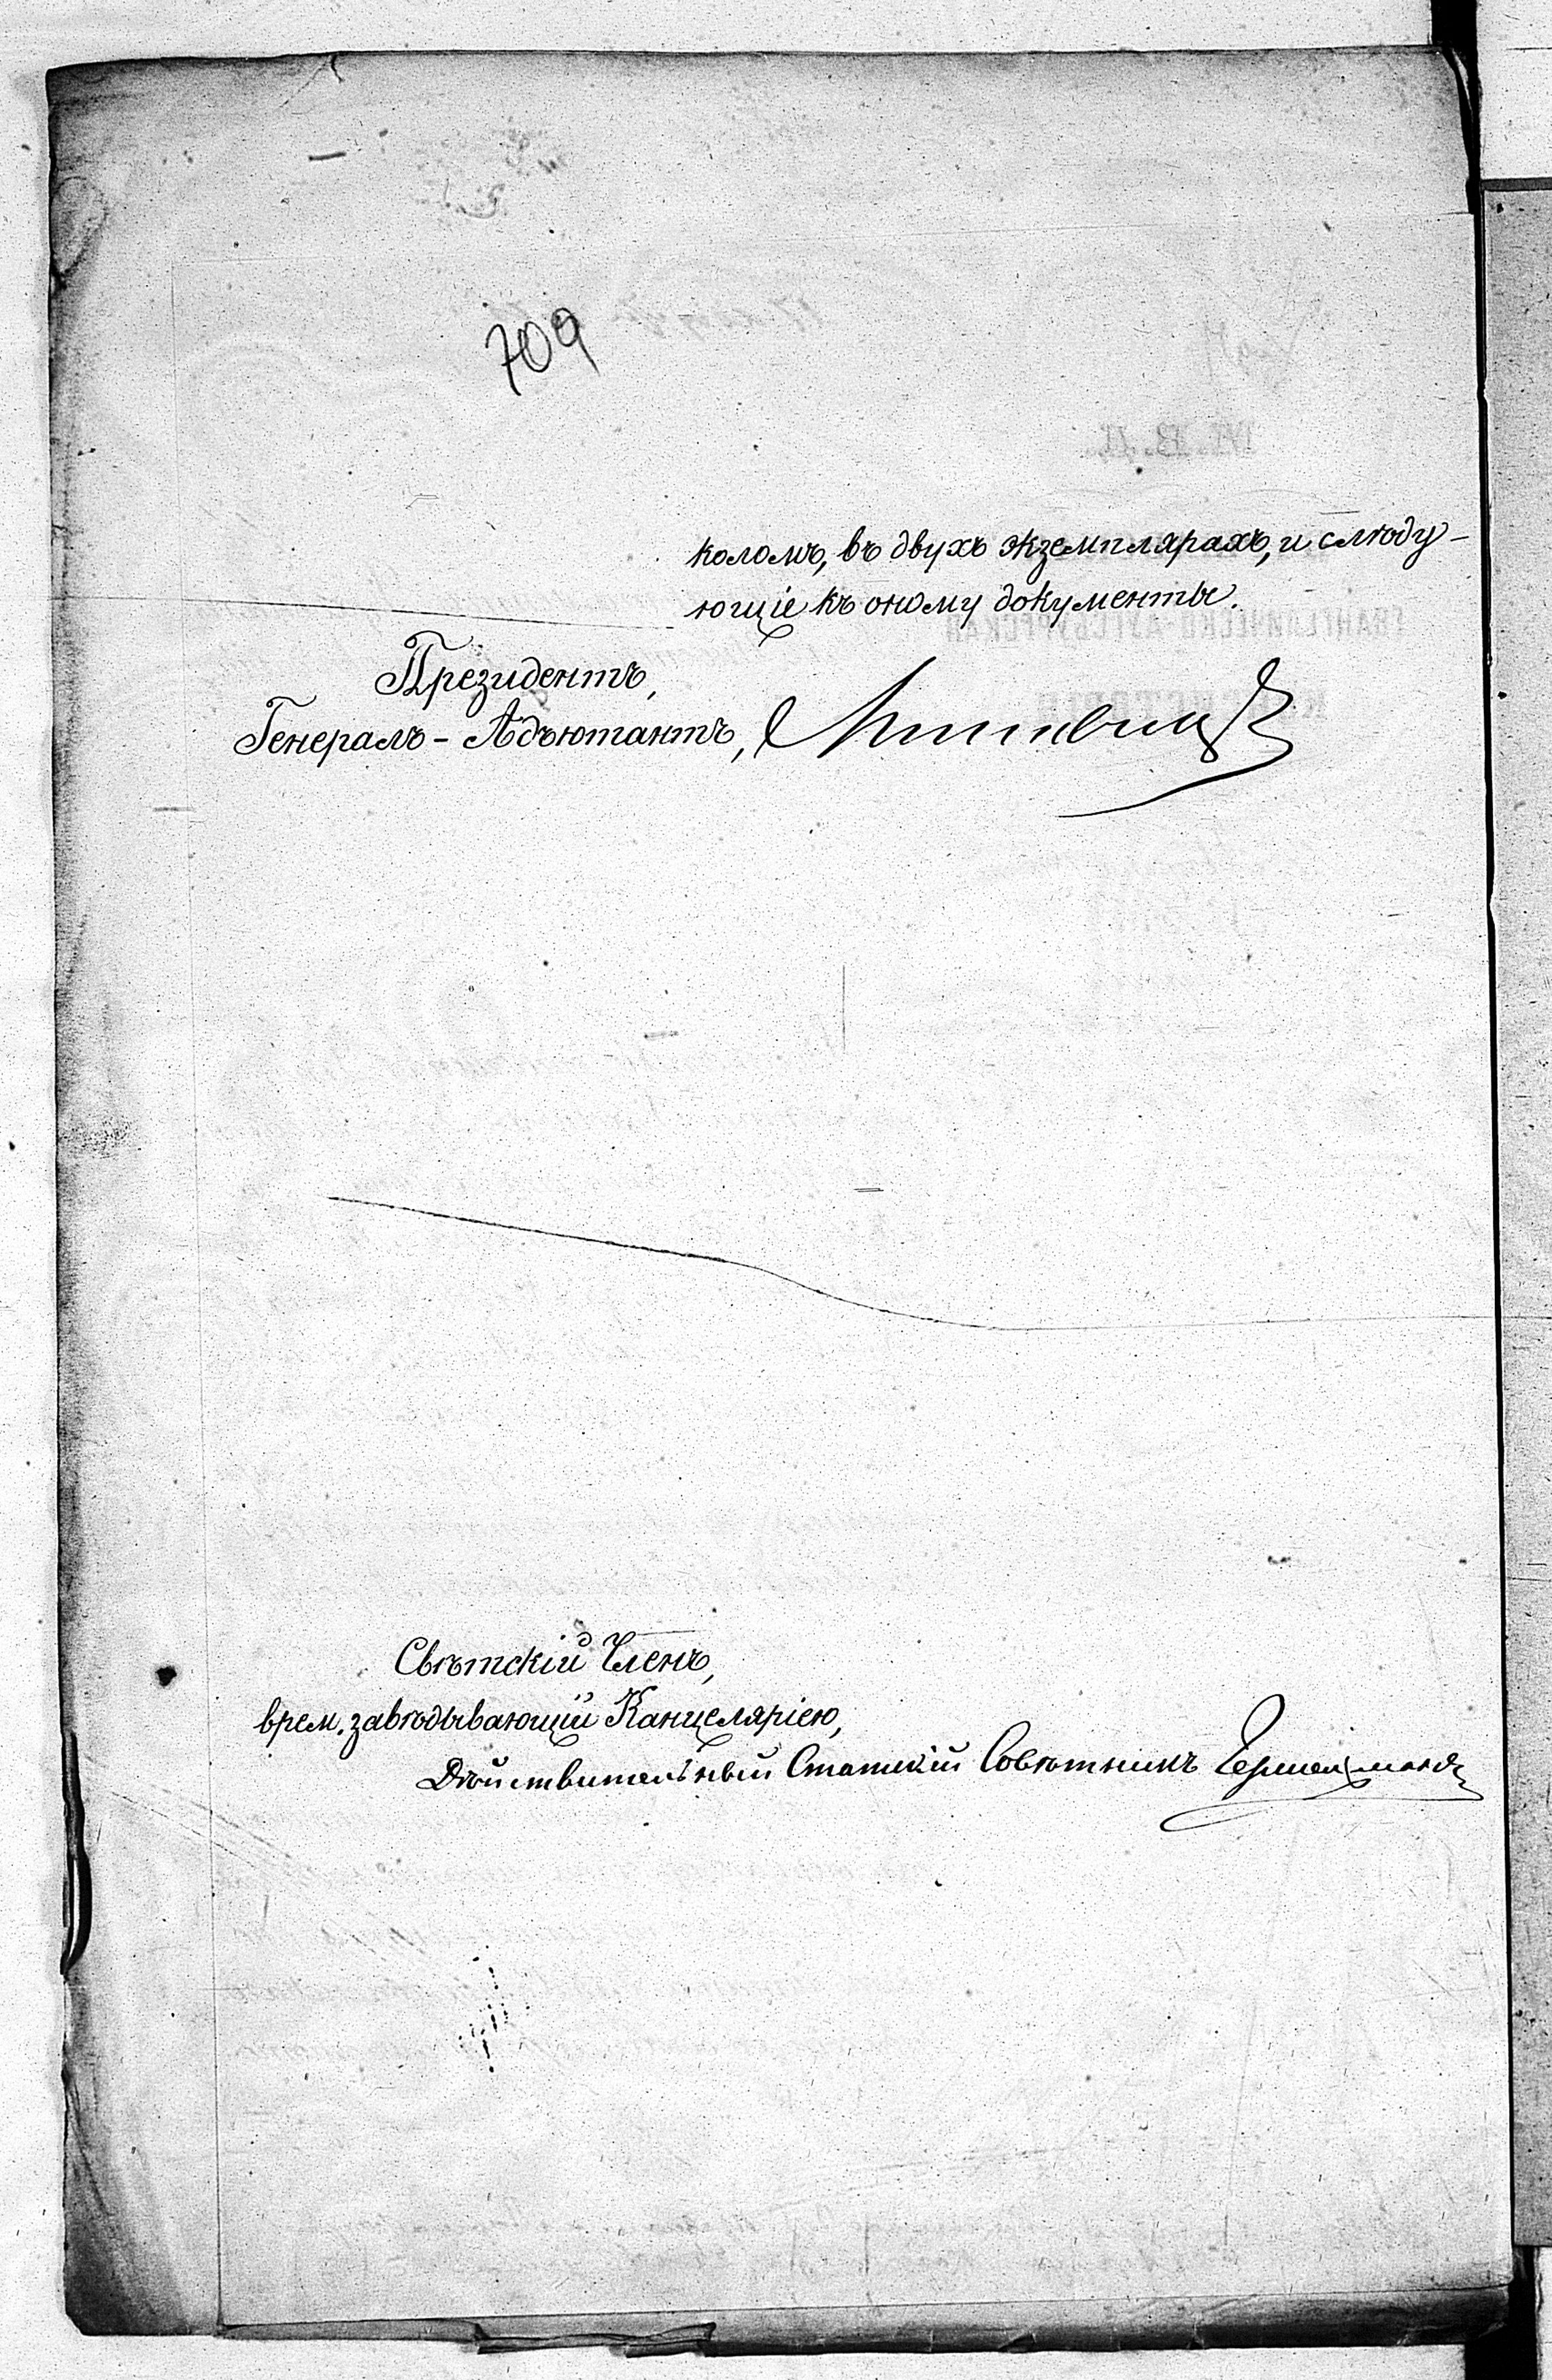 709
коломъ, въ двухъ экземплярахъ, и слѣду-
ющіе къ оному документы.
Президентъ,
Генералъ-Адъютантъ,
Свѣтскій Членъ,
врем. завѣдывающій Канцеляріею,
Дѣйствительный Статскій Совѣтникъ